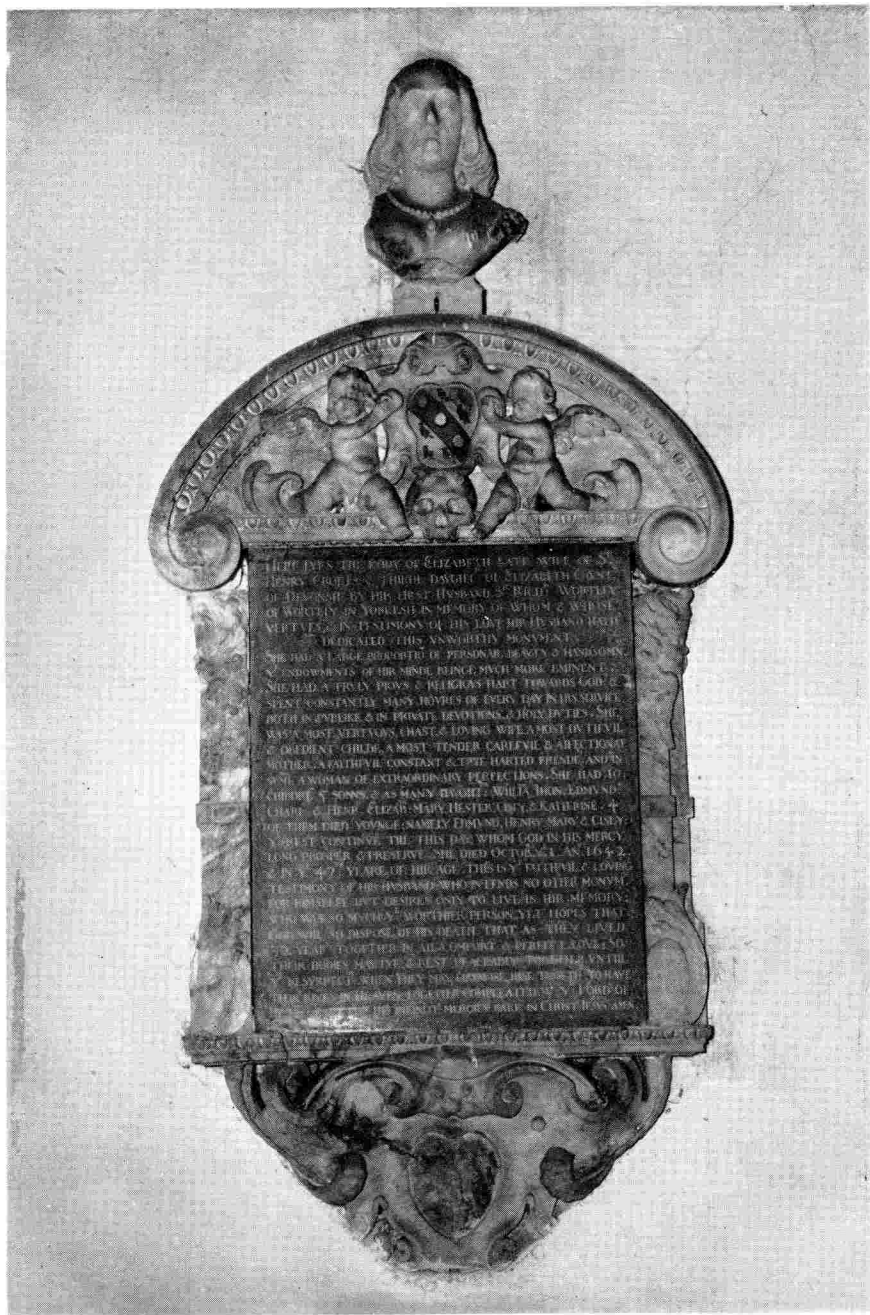 HERE LYES THE BODY OF ELIZABETH LATE WIFE OF Sr
HENRY CROFTS & THIRD DAVGHT OF ELIZABETH COVNT.
OF DEVONSH BY HIR FIRST HVSBAND Sr RICHD WORTLEY
OF WORTLEY IN YORKSH IN MEMORY OF WHOM & WHOSE
VERTVES & IN TESTIMONY OF HIS LOVE HIR HVSBAND HATH
DEDICATED THIS VNWORTHY MONVMENT.
SHE HAD A LARGE PROPORTIO OF PERSONAL BEAVTY & HANDSOMN.
Ye ENDOWMENTS OF HIR MINDE BEINGE MVCH MORE EMINENT.
SHE HAD A TRVLY PIOVS & RELIGIOVS HART TOWARDS GOD &
SPENT CONSTANTLY MANY HOVRES OF EVERY DAY IN HIS SERVICE
BOTH IN PVBLIKE & IN PRIVATE DEVOTIONS, & HOLY DVTIES. SHE
WAS A MOST VERTVOVS, CHAST, & LOVING WIFE, A MOST DVTIFVL
& OBEDIENT CHILDE, A MOST TENDER CAREFVLL & AFFECTIONAT
MOTHER, A FAITHFVL CONSTANT & TRVE HARTED FREINDE, AND IN
A WOMAN OF EXTRAORDINARY PERFECTIONS. SHE HAD 10
5 SONNS, & AS MANY DAVGHT: WILLIA, IHON, EDMVND,
CHARL & HENR: ELIZAB: MARY HESTER CISLY & KATHERINE. 4
OF THEM DIED YOVNGE: NAMELY EDMVND, HENRY, MARY & CISLY:
Ye REST CONTINVE TILL THIS DAY, WHOM GOD IN HIS MERCY
LONG PROSPER & PRESERVE. SHE DIED OCTOB AN 1642
& IN Ye 47 YEARE OF HIR AGE. THIS IS Ye FAITHFVL & LOVING
TESTIMONY OF HIR HVSBAND WHO INTENDS NO OTHER MONVM.
FOR HIMSELF BVT DESIRES ONLY TO LIVE IN HIR MEMORY;
WHO WAS SO MVCH Ye WORTHIER PERSON, YET HOPES THAT
SO DISPOSE OF HIS DEATH THAT AS THEY LIVED
YEAR TOGETHER IN ALL COMFORT & PERFECT LOVE; SO
THEIR BODIES MAY LYE & REST PEACEABLY TOGETHER VNTIL
WHEN THEY MAY TO HAVE
TOGETHER Ye LORD OF
MERCY BAKE IN CHRIST IESVS AMN